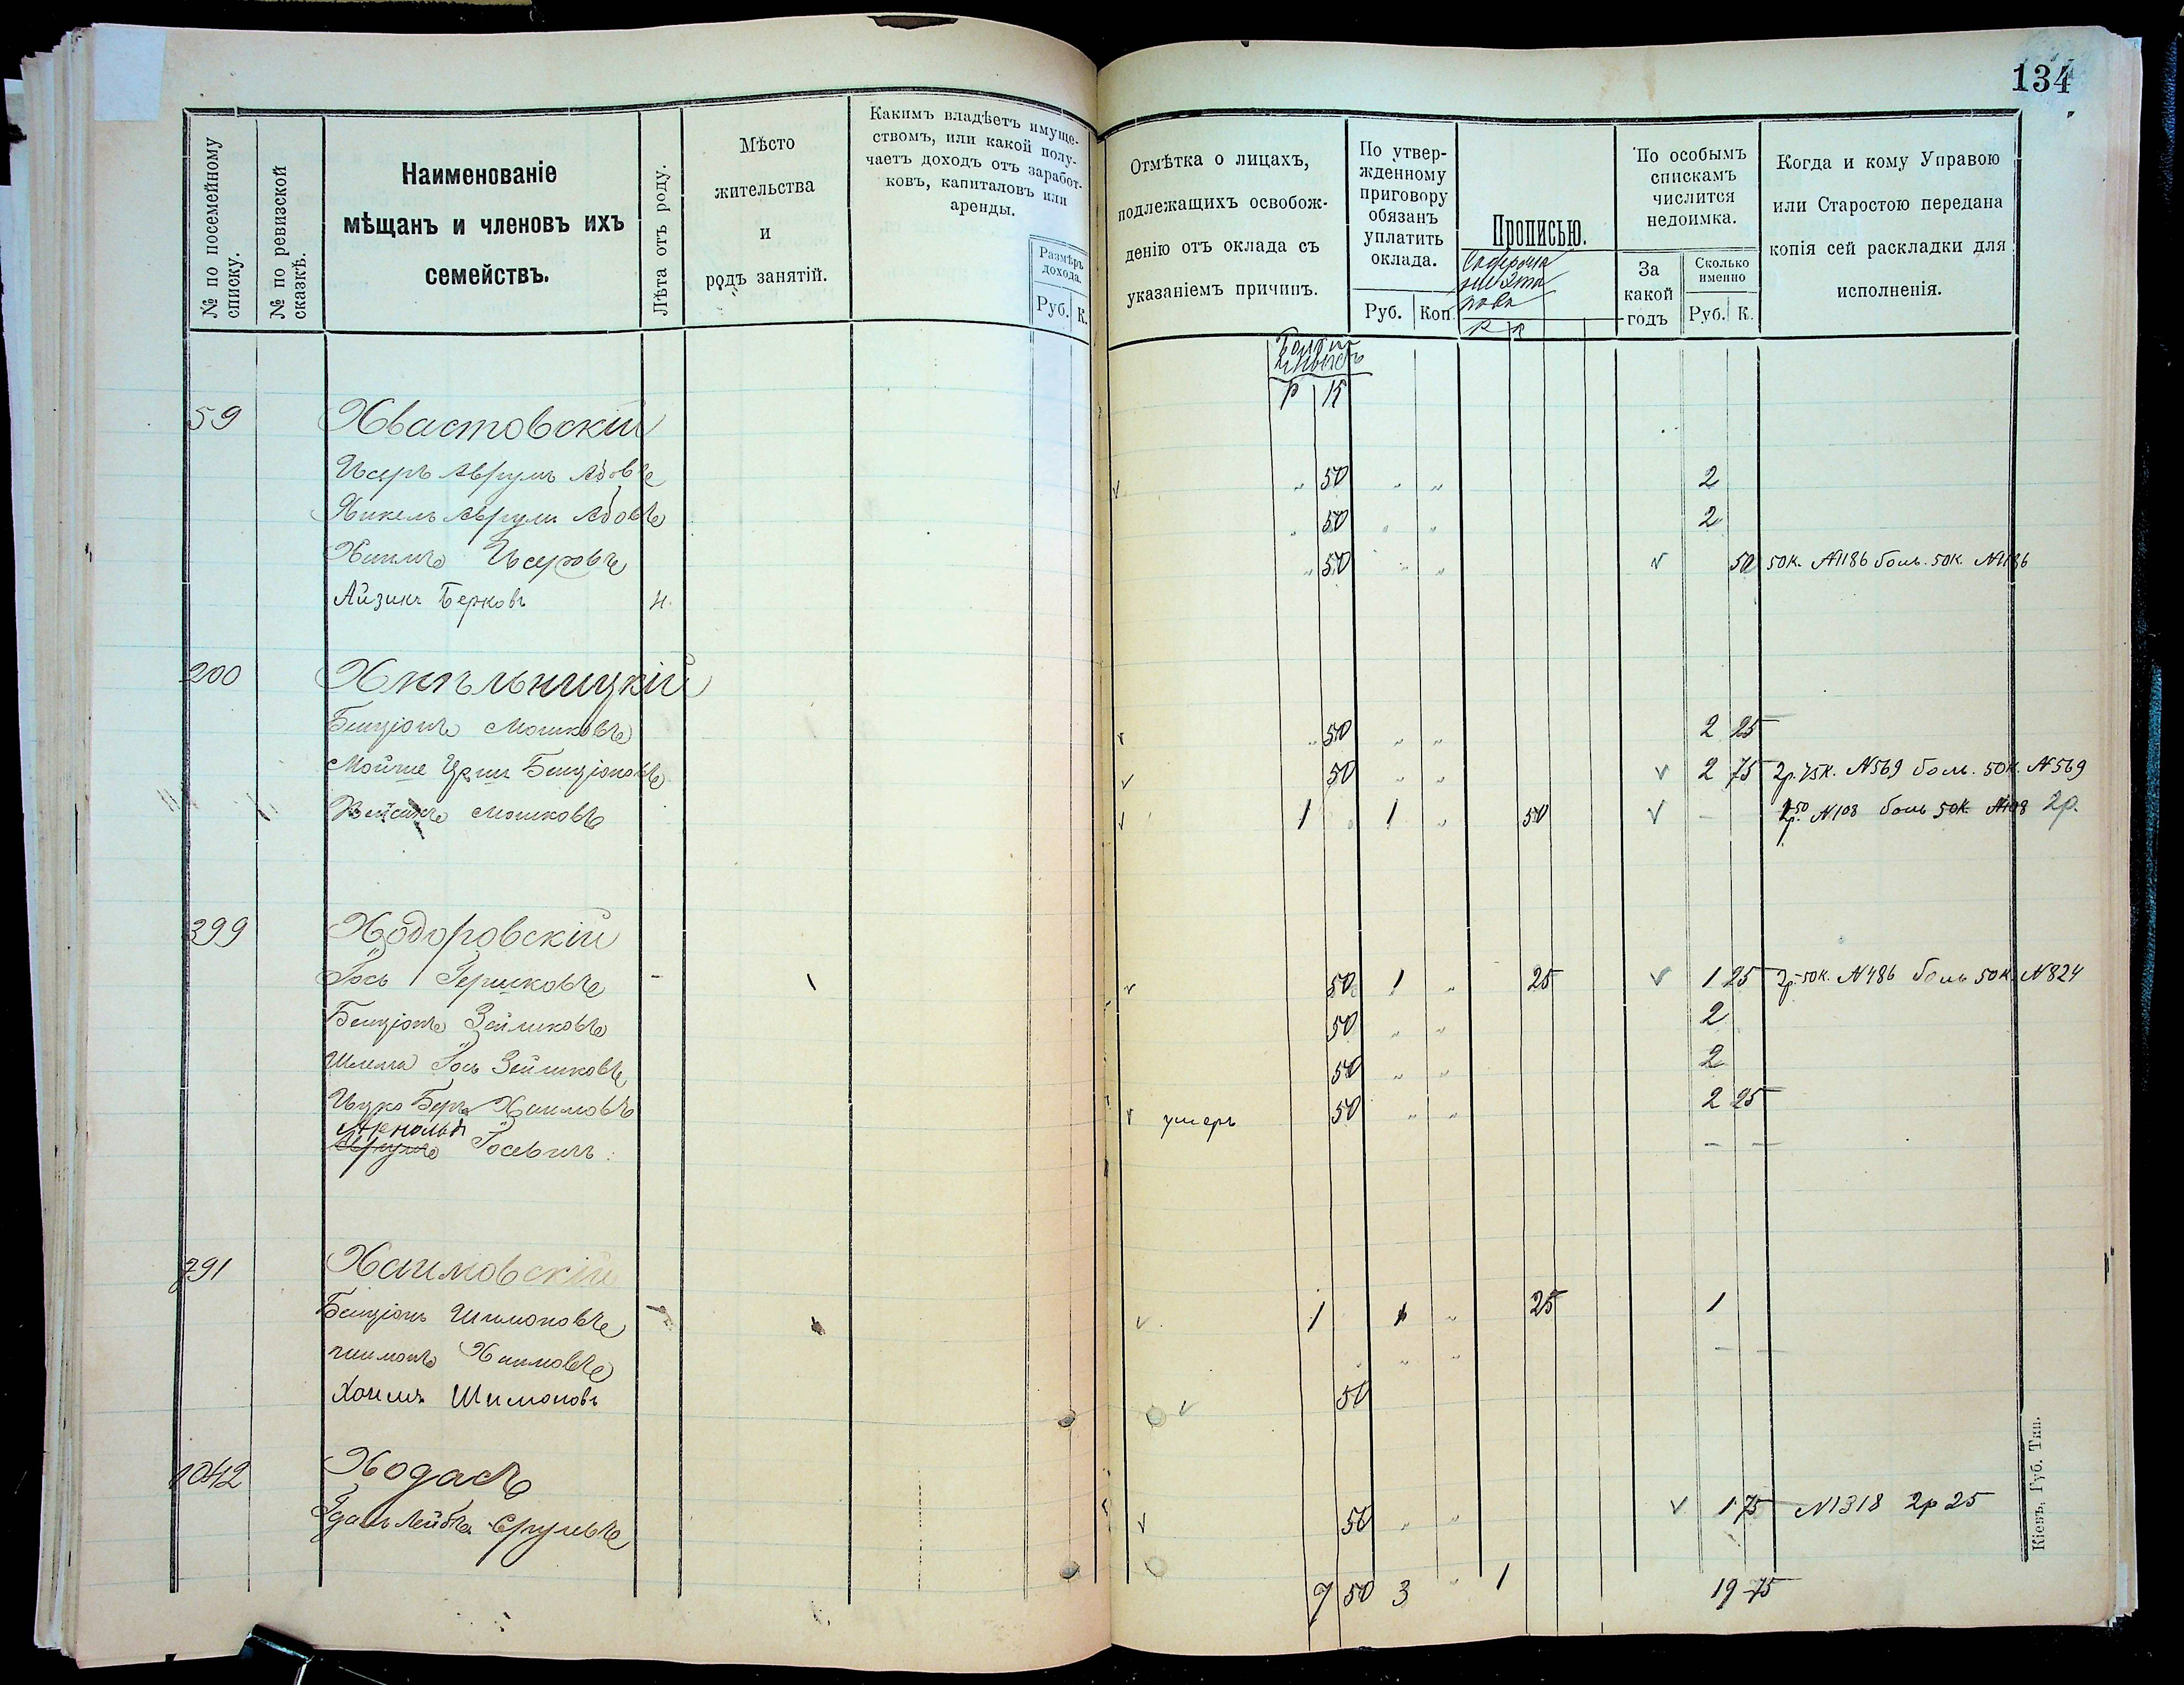 134
№ по посемейному списку.
№ по ревизской сказкѣ.
Наименованіе
мѣщанъ и членовъ ихъ
семействъ.
Лѣта отъ роду.
Мѣсто
жительства
и
родъ занятій.
Какимъ владѣетъ имуще-
ствомъ, или какой полу-
чаетъ доходъ отъ заработ-
ковъ, капиталовъ или
аренды.
Размѣръ
дохода.
Руб. К.
Отмѣтка о лицахъ,
подлежащихъ освобож-
денію отъ оклада съ
указаніемъ причинъ.
По утвер-
жденному
приговору
обязанъ
уплатить
оклада.
Руб. Коп.
Прописью.
По особымъ
спискамъ
числится
недоимка.
За
какой
годъ
Сколько
именно
Руб. К.
Когда и кому Управою
или Старостою передана
копія сей раскладки для
исполненія.
Р К
59 Хвастовскій
Иссръ Аврумъ Абовъ „ 50 „ „ 2
Янкель Аврумъ Абовъ „ 50 „ „ 2
Хаимъ Иссровъ „ 50 „ „ 50 50к. №1186 боль. 50к. №1186
Айзикъ Берковъ
200 Хмѣльницкій
Бенціонъ Мошковъ „ 50 „ „ 2 25
Мойше Бенціоновъ 50 „ „ 2 75 2р.75к. №569 боль. 50к. №569
Мошковъ 1 1 „ 50 – №108 боль 50к №108 2р.
399 Ходоровскій
Іось Гершковъ 50 1 „ 25 1 25 2р-50к. №486 боль 50к №824
Бенціонъ Зейликовъ 50 „ „ 2
Шлема Іось Зейликовъ 50 „ „ 2
Ицко Беръ Хаимовъ умеръ 50 „ „ 2 25
Арнольдъ
Аврумъ Іосевичъ – –
791 Хаимовскій
Бенціонъ Шимоновъ 1 1 „ 25 1
Шимонъ Хаимовъ „ „ „ – –
Хаимъ Шимоновъ 50
1042 Ходасъ
Лейба Сруловъ 50 „ „ 1 75 №1318 2р 25
7 50 3 „ 1 19 75
Кіевъ, Губ. Тип.